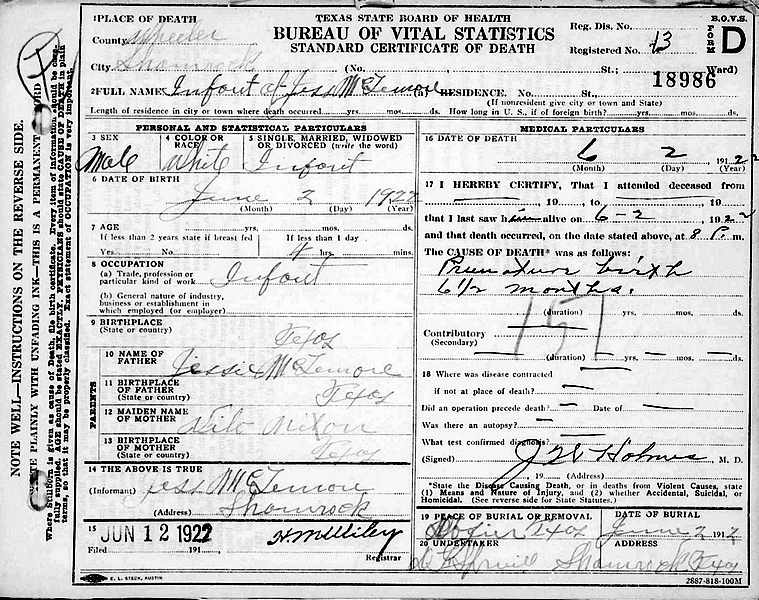 TEXAS STATE BOARD OF HEALTH
BUREAU OF VITAL STATISTICS
STANDARD CERTIFICATE OF DEATH
B.O.V.S.
FORM D
Reg. Dis. No.
Registered No. 13
18986
1 PLACE OF DEATH
County Wheeler
City Shamrock (No. St.; Ward)
2 FULL NAME Infant of Jess McLemore RESIDENCE. No. St.,
(If nonresident give city or town and State)
Length of residence in city or town where death occurred yrs. mos. ds. How long in U. S., if of foreign birth? yrs. mos. ds.
PERSONAL AND STATISTICAL PARTICULARS
3 SEX
Male
4 COLOR OR RACE
White
5 SINGLE, MARRIED, WIDOWED OR DIVORCED (write the word)
Infant
6 DATE OF BIRTH
June 2 1922
(Month) (Day) (Year)
7 AGE yrs. mos. ds.
If less than 2 years state if breast fed
If less than 1 day
Yes No 4 hrs. mins.
8 OCCUPATION
(a) Trade, profession or particular kind of work Infant
(b) General nature of industry, business or establishment in which employed (or employer)
9 BIRTHPLACE
(State or country) Texas
PARENTS
10 NAME OF FATHER Jessie McLemore
11 BIRTHPLACE OF FATHER
(State or country) Texas
12 MAIDEN NAME OF MOTHER Nixon
13 BIRTHPLACE OF MOTHER
(State or country) Texas
14 THE ABOVE IS TRUE
(Informant) Jess McLemore
(Address) Shamrock
15
JUN 12 1922
Filed 191
Registrar
E. L. STECK, AUSTIN
MEDICAL PARTICULARS
16 DATE OF DEATH
6 2 1922
(Month) (Day) (Year)
17 I HEREBY CERTIFY, That I attended deceased from
19 to 19
that I last saw him alive on 6-2 1922
and that death occurred, on the date stated above, at 8 P. m.
The CAUSE OF DEATH* was as follows:
Premature birth
6 1/2 months.
151
(duration) yrs. mos. ds.
Contributory
(Secondary)
(duration) yrs. mos. ds.
18 Where was disease contracted
if not at place of death?
Did an operation precede death? Date of
Was there an autopsy?
What test confirmed diagnosis?
(Signed) Holmes M. D.
19 (Address)
*State the Disease Causing Death, or in deaths from Violent Causes, state
(1) Means and Nature of Injury, and (2) whether Accidental, Suicidal, or
Homicidal. (See reverse side for State Statutes.)
19 PLACE OF BURIAL OR REMOVAL
DATE OF BURIAL
Texas June 2 191
20 UNDERTAKER
ADDRESS
Shamrock Texas
2687-818-100M
NOTE WELL—INSTRUCTIONS ON THE REVERSE SIDE.
PLAINLY WITH UNFADING INK—THIS IS A PERMANENT
Where Stillborn is given as cause of Death, file birth certificate. Every item of information should be carefully supplied. AGE should be stated EXACTLY. PHYSICIANS should state CAUSE OF DEATH in plain terms, so that it may be properly classified. Exact statement of OCCUPATION is very important.